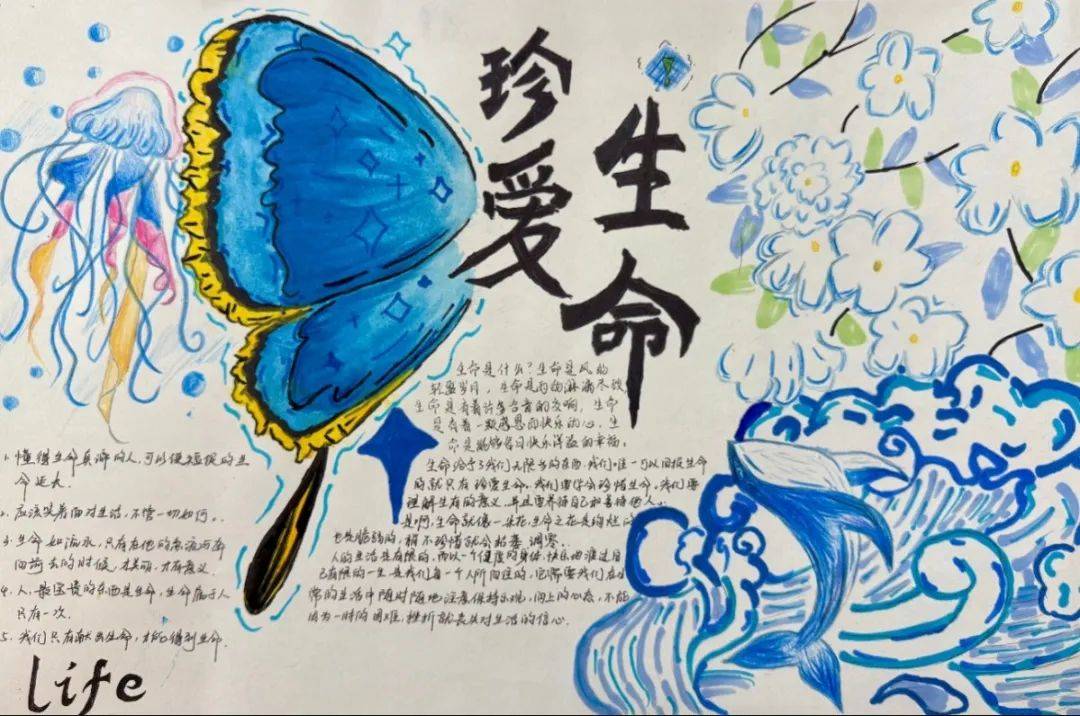 珍爱
生命
生命是什么?生命是风的
轻盈岁月,生命是雨的淋漓尽致
生命是有着许多音育的交响,生命
是有着一颗感恩而快乐的心,生
命是能够每日快乐洋溢的幸福。
生命给予了我们无限多的东西,我们唯一可以回报生命
的就只有珍爱生命。我们要学会珍惜生命,我们要
理解生存的意义,并且要善待自己和善待他人。
是啊,生命就像一朵花,生命之花是绚烂的
也是脆弱的,稍不珍惜就会枯萎凋零。
人的生活是有限的,而以一个健康的身体,快乐地渡过自
己有限的一生是我们每一个人所向往的,它需要我们在日
常的生活中随时随地注意保持乐观,向上的心态,不能
因为一时的困难,挫折就丧失对生活的信心.
1、懂得生命真谛的人,可以使短促的生
命延长.
2、应该笑着面对生活,不管一切如何。.
3、生命如流水,只有在他的急流与奔
向前去的时候,才美丽,才有意义.
4、人,最宝贵的东西是生命,生命属于人
只有一次.
5、我们只有献出生命,才能得到生命.
life